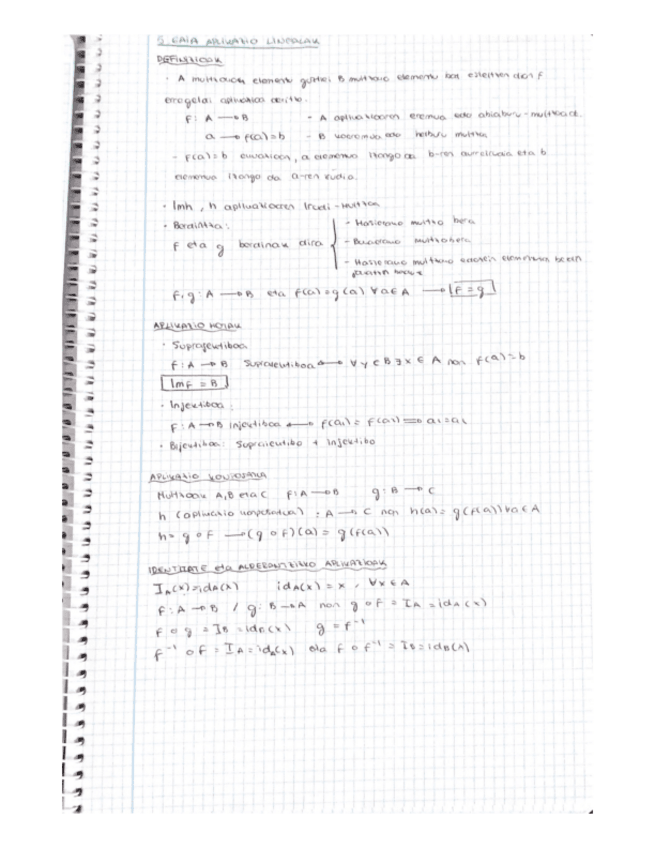 5. GAIA APLIKAZIO LINEALAK
DEFINIZIOAK
· A multzoaren elementu guztiei B multzoko elementu bat esleitzen dion f
erregelari aplikazioa deritzo.
f: A → B - A aplikazioaren eremua edo abiaburu-multzoa da.
a → f(a)=b - B koeremua edo helburu multzoa
- f(a)=b , a elementua izango da b-ren aurreirudia eta b
elementua izango da a-ren irudia.
· Imh, h aplikazioaren Irudi-Multzoa
· Berdintza:
f eta g berdinak dira
- Hasierako multzo bera
- Bukaerako multzo bera
- Hasierako multzoko edozein elementuk
f, g: A → B eta f(a)=g(a) ∀a∈A → f=g
APLIKAZIO MOTAK
· Suprajektiboa
f: A → B Suprajektiboa ↔ ∀y∈B ∃x∈A non f(a)=b
Imf = B
· Injektiboa:
f: A → B injektiboa ↔ f(a₁) = f(a₂) ⇒ a₁=a₂
· Bijektiboa: Suprajektibo + Injektibo
APLIKAZIO KONPOSAKETA
Multzoak A, B eta C f: A → B g: B → C
h (aplikazio konposatua): A → C non h(a) = g(f(a)) ∀a∈A
h = g o f → (g o f)(a) = g(f(a))
IDENTITATE eta ALDERANTZIZKO APLIKAZIOAK
I_A(x)=id_A(x) id_A(x) = x, ∀x∈A
f: A → B / g: B → A non g o f = I_A = id_A(x)
f o g = I_B = id_B(x) g = f⁻¹
f⁻¹ o f = I_A = id_A(x) eta f o f⁻¹ = I_B = id_B(x)